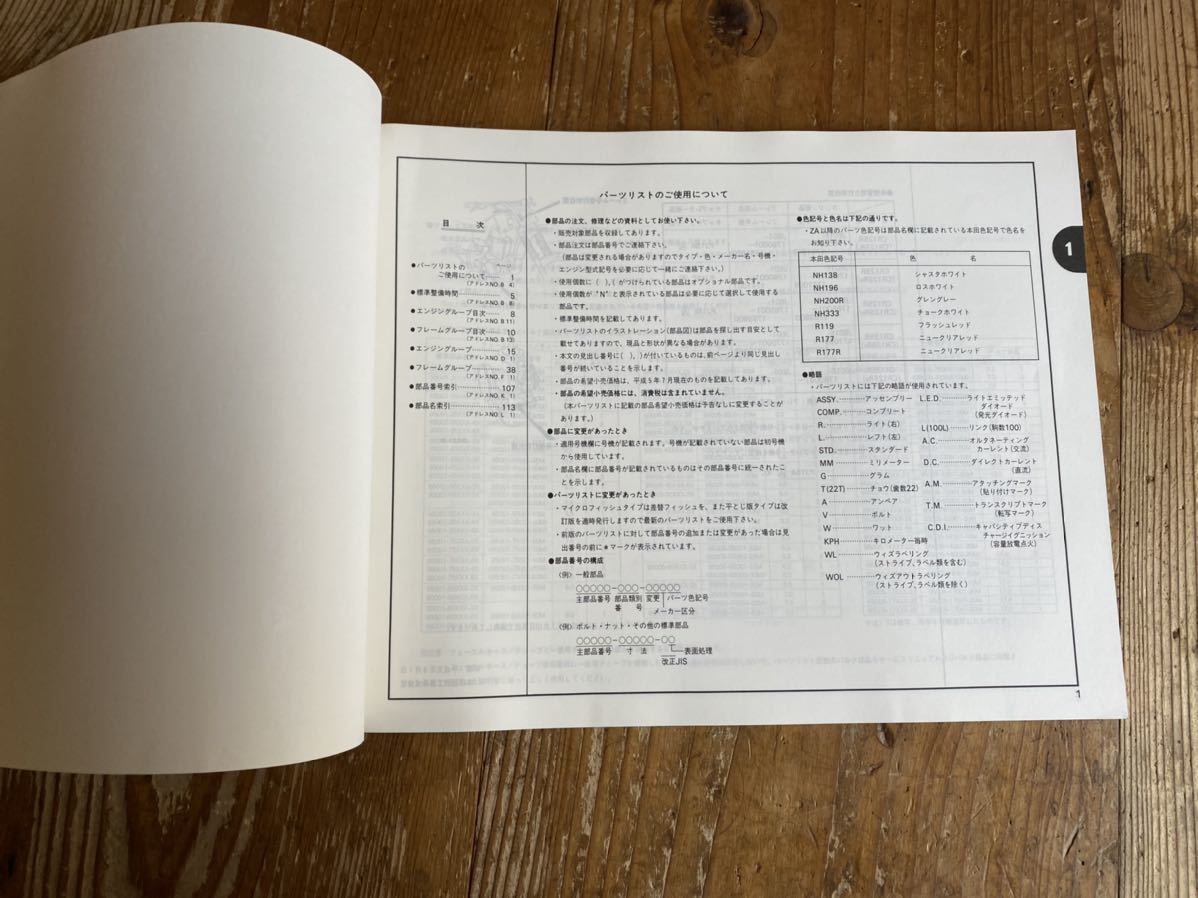 パーツリストのご使用について
目 次
ページ
●パーツリストの
ご使用について…… 1
(アドレスNO. B 4)
●標準整備時間……… 5
(アドレスNO. B 8)
●エンジングループ目次… 8
(アドレスNO. B 11)
●フレームグループ目次… 10
(アドレスNO. B 13)
●エンジングループ…… 15
(アドレスNO. D 1)
●フレームグループ…… 38
(アドレスNO. F 1)
●部品番号索引……… 107
(アドレスNO. K 1)
●部品名索引………… 113
(アドレスNO. L 1)
●部品の注文、修理などの資料としてお使い下さい。
・販売対象部品を収録してあります。
・部品注文は部品番号でご連絡下さい。
(部品は変更される場合がありますのでタイプ・色・メーカー名・号機・
エンジン型式記号を必要に応じて一緒にご連絡下さい。)
・使用個数に( )、( がつけられている部品はオプショナル部品です。
・使用個数が "N" と表示されている部品は必要に応じて選択して使用する
部品です。
・標準整備時間を記載してあります。
・パーツリストのイラストレーション(部品図)は部品を探し出す目安として
載せてありますので、現品と形状が異なる場合があります。
・本文の見出し番号に( )、)が付いているものは、前ページより同じ見出し
番号が続いていることを示します。
・部品の希望小売価格は、平成5年7月現在のものを記載してあります。
・部品の希望小売価格には、消費税は含まれていません。
(本パーツリストに記載の部品希望小売価格は予告なしに変更することが
あります。)
●部品に変更があったとき
・適用号機欄に号機が記載されます。号機が記載されていない部品は初号機
から使用しています。
・部品名欄に部品番号が記載されているものはその部品番号に統一されたこ
とを示します。
●パーツリストに変更があったとき
・マイクロフィッシュタイプは差替フィッシュを、また平とじ版タイプは改
訂版を適時発行しますので最新のパーツリストをご使用下さい。
・前版のパーツリストに対して部品番号の追加または変更があった場合は見
出番号の前に★マークが表示されています。
●部品番号の構成
〈例〉一般部品
○○○○○-○○○-○○○○○
主部品番号 部品類別 変更 パーツ色記号
番 号 メーカー区分
〈例〉ボルト・ナット・その他の標準部品
○○○○○-○○○○○-○○
主部品番号 寸 法 表面処理
改正JIS
●色記号と色名は下記の通りです。
・ZA以降のパーツ色記号は部品名欄に記載されている本田色記号で色名を
お知り下さい。
本田色記号 色 名
NH138 シャスタホワイト
NH196 ロスホワイト
NH200R グレングレー
NH333 チョークホワイト
R119 フラッシュレッド
R177 ニュークリアレッド
R177R ニュークリアレッド
●略語
・パーツリストには下記の略語が使用されています。
ASSY.…………アッセンブリー
COMP.…………コンプリート
R.………………ライト(右)
L.………………レフト(左)
STD.……………スタンダード
MM……………ミリメーター
G………………グラム
T(22T)…………チョウ(歯数22)
A………………アンペア
V………………ボルト
W………………ワット
KPH……………キロメーター毎時
WL……………ウィズラベリング
(ストライプ、ラベル類を含む)
WOL……………ウィズアウトラベリング
(ストライプ、ラベル類を除く)
L.E.D.…………ライトエミッテッド
ダイオード
(発光ダイオード)
L(100L)………リンク(駒数100)
A.C.……………オルタネーティング
カーレント(交流)
D.C.……………ダイレクトカーレント
(直流)
A.M.……………アタッチングマーク
(貼り付けマーク)
T.M.……………トランスクリプトマーク
(転写マーク)
C.D.I.…………キャパシティブディス
チャージイグニッション
(容量放電点火)
1
1